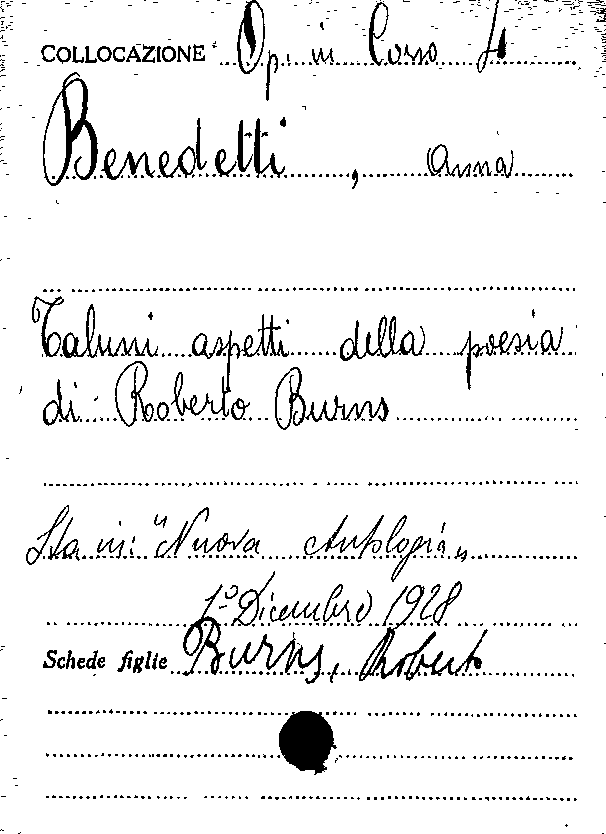 COLLOCAZIONE Op. in Corso 4
Benedetti, Anna
Taluni aspetti della poesia
di Roberto Burns
Sta in: "Nuova Antologia"
1° Dicembre 1928
Schede figlie Burns, Robert